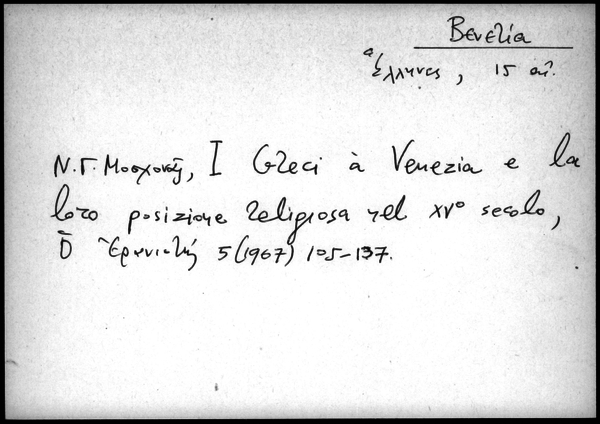 Βενετία
Ἕλληνες, 15 αἰ.
Ν. Γ. Μοσχονᾶς, I Greci à Venezia e la
loro posizione religiosa nel XV° secolo,
Ὁ Ἐρανιστής 5 (1967) 105-137.